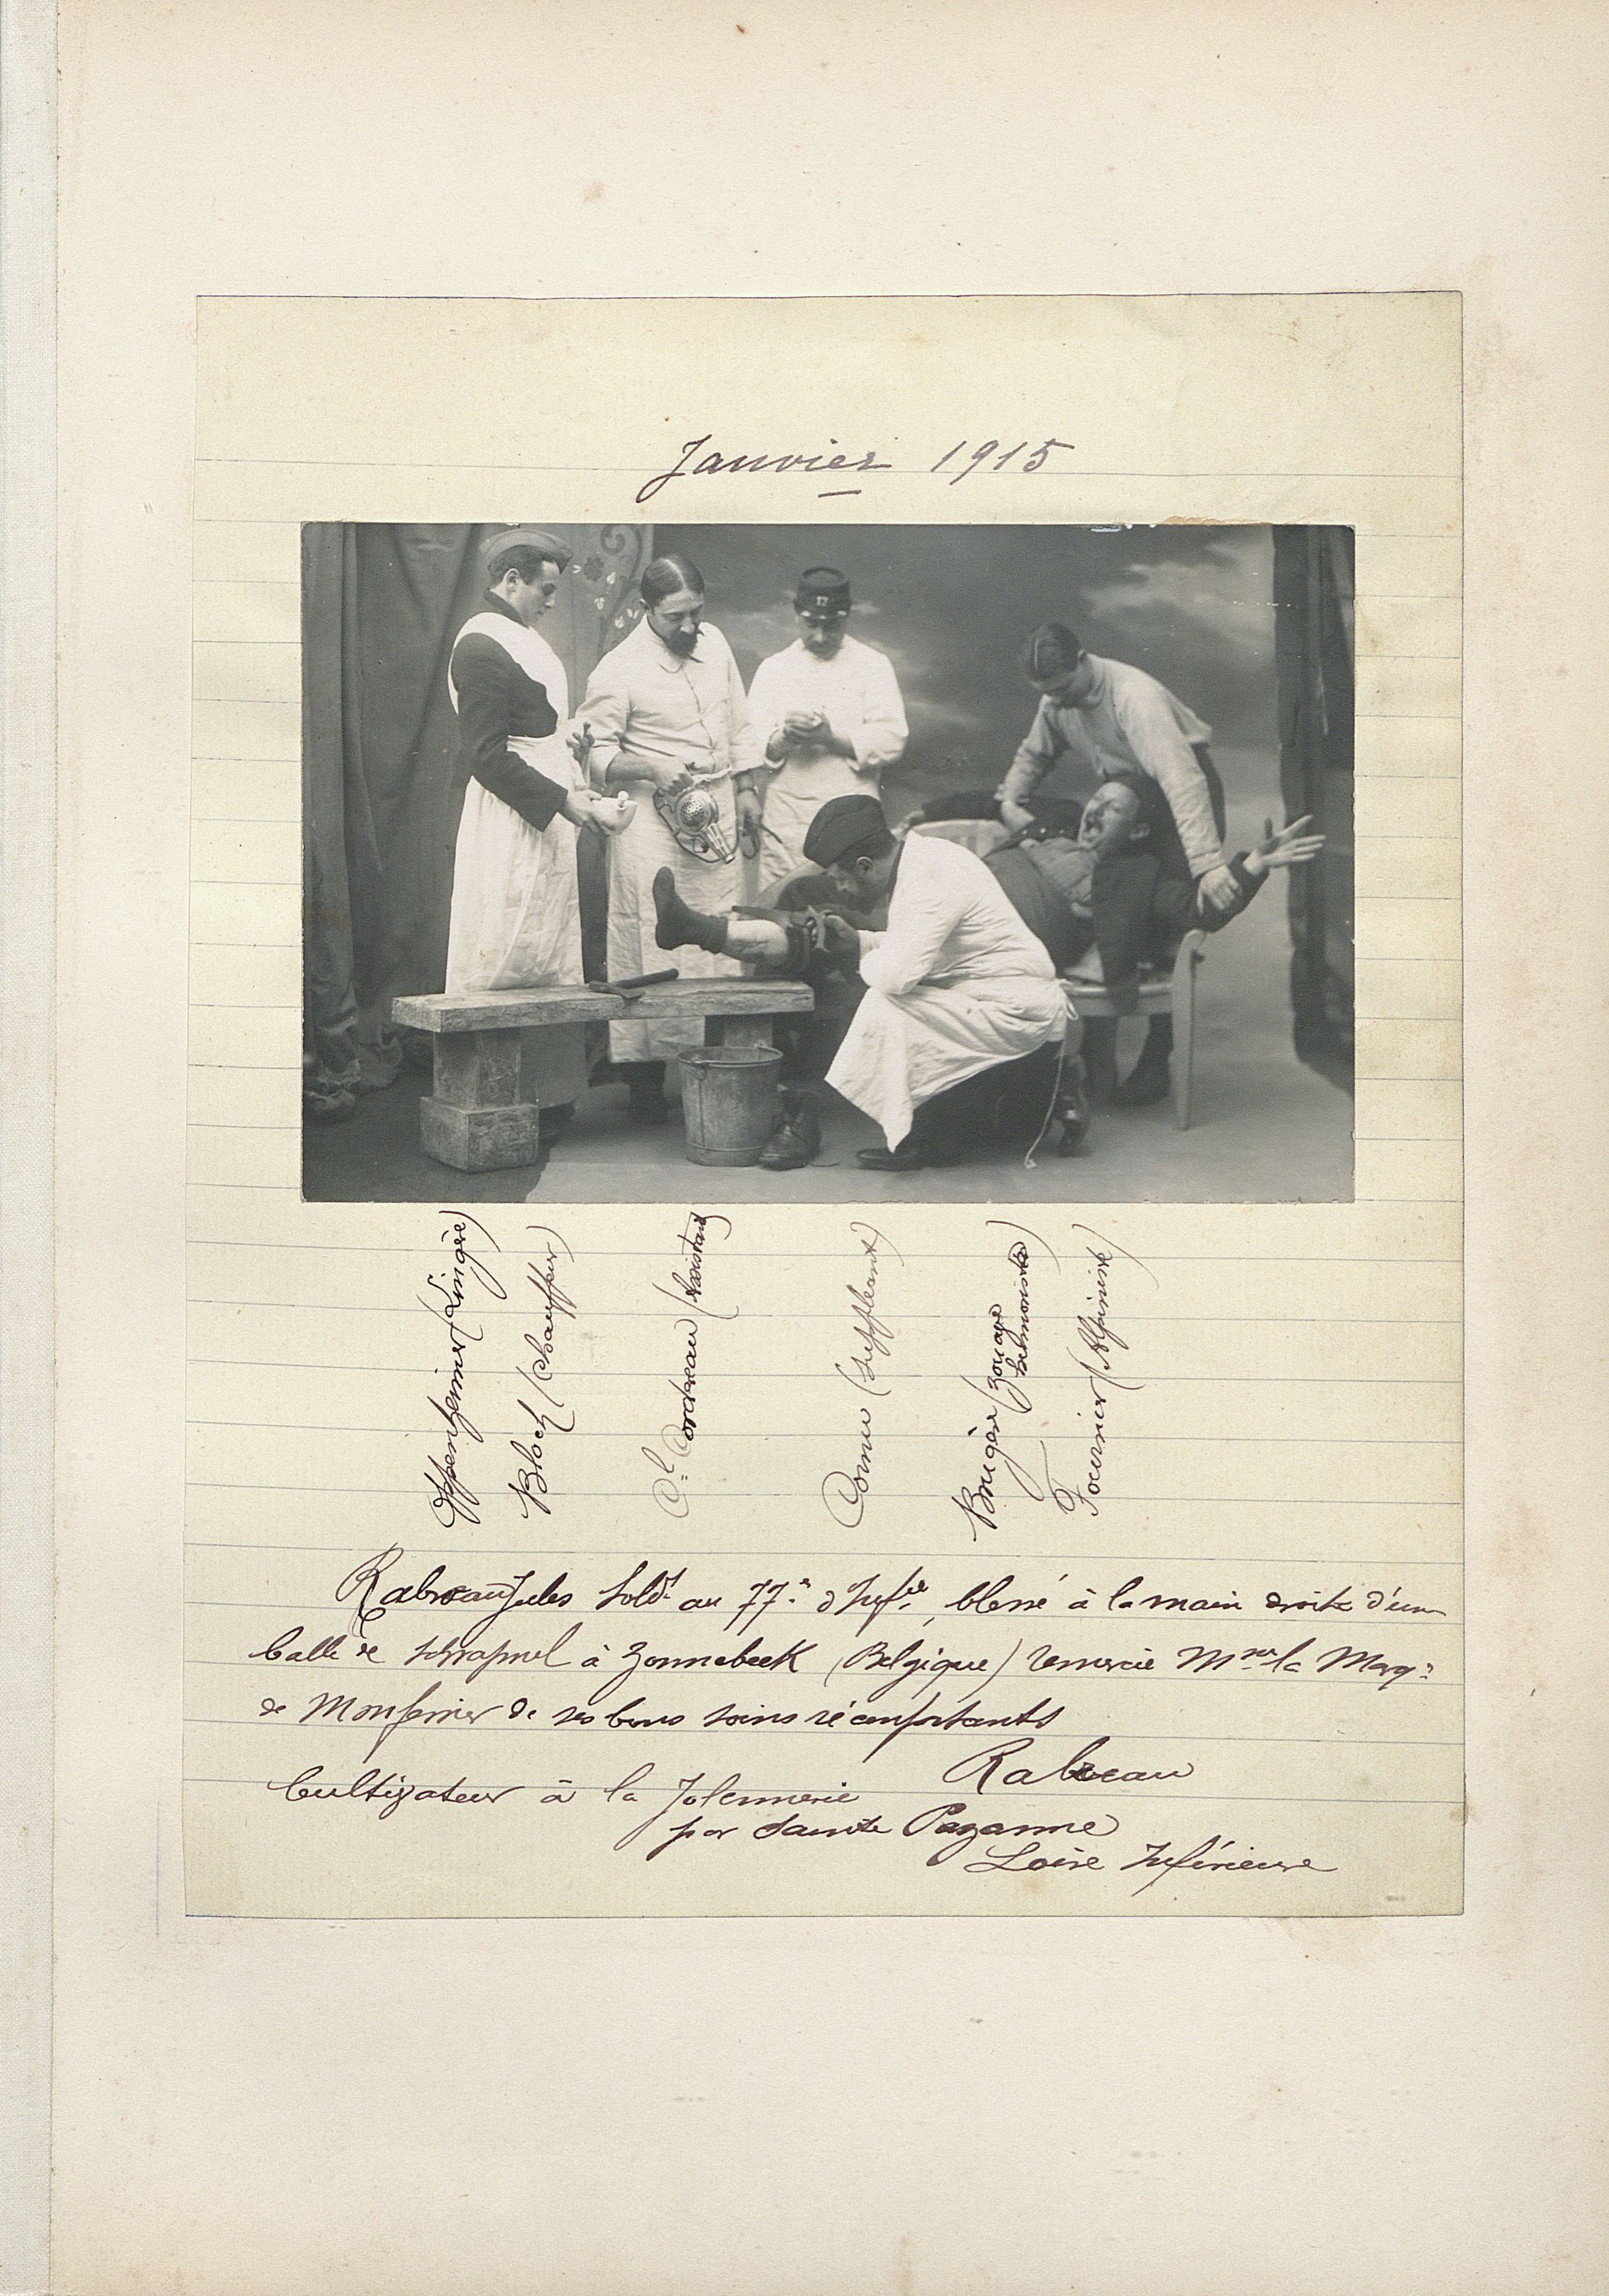 Janvier 1915
Oppenheimer (Lingère)
Bloch (Chauffeur)
Cl. Cordreau (Assistant)
Cornu (suppléant)
Brugère (zouave
Fournier (Alpiniste)
Rabreau Jules Soldt au 77e d'Infie, blessé à la main droite d'une
balle de schrapnel à Zonnebeek (Belgique) remercie Mme la Marq.
de Monferrier de ses bons soins réconfortants
Rabreau
Cultivateur à la
par Sainte Pazanne
Loire Inférieure